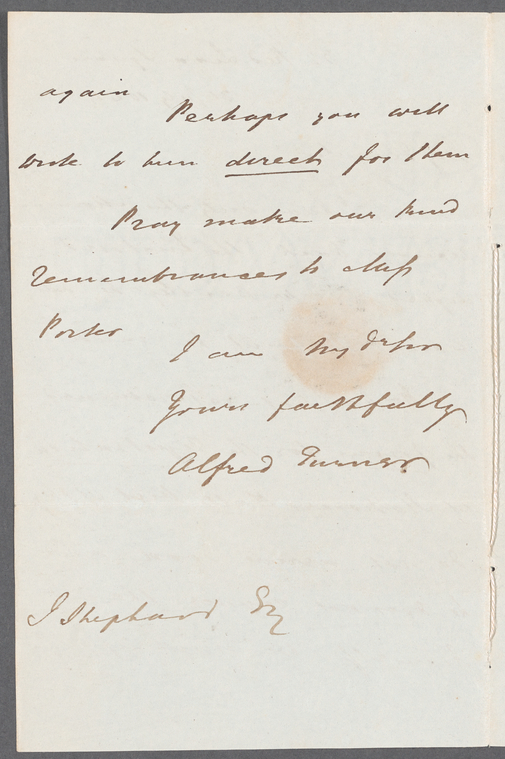 again
Perhaps you will
write to him direct for them
Pray make our kind
remembrances to Miss
Porter
I am My dr Sir
Yours faithfully
Alfred Turner
J Shephard Esq